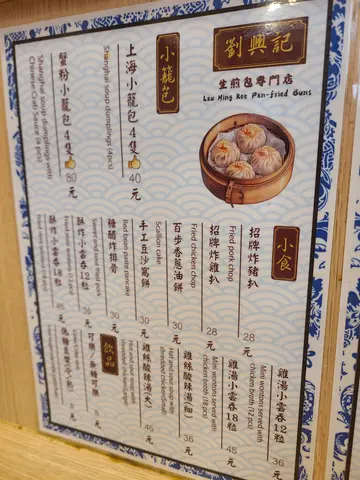 劉興記
生煎包專門店
Lau Hing Kee Pan-fried Buns
小籠包
上海小籠包4隻 40元
Shanghai soup dumplings (4pcs)
蟹粉小籠包4隻 80元
Shanghai soup dumplings with
Chinese Crab Sauce (4 pcs)
小食
招牌炸豬扒 28元
Fried pork chop
招牌炸雞扒 28元
Fried chicken chop
百步香蔥油餅 30元
Scallion cake
手工豆沙窩餅 30元
Red bean paste pancake
糖醋炸排骨
Sweet and sour
酥炸小雲吞12粒
酥炸小雲吞18粒 45元
雞湯小雲吞12粒 36元
Mini wontons served with
chicken broth (12 pcs)
雞湯小雲吞18粒 45元
Mini wontons served with
chicken broth (18 pcs)
雞絲酸辣湯(細) 36元
Hot and sour soup with
shredded chicken
雞絲酸辣湯(大) 45元
Hot and sour soup with
shredded chicken
飲品
可樂/無糖可樂
低糖豆漿(冷/熱)